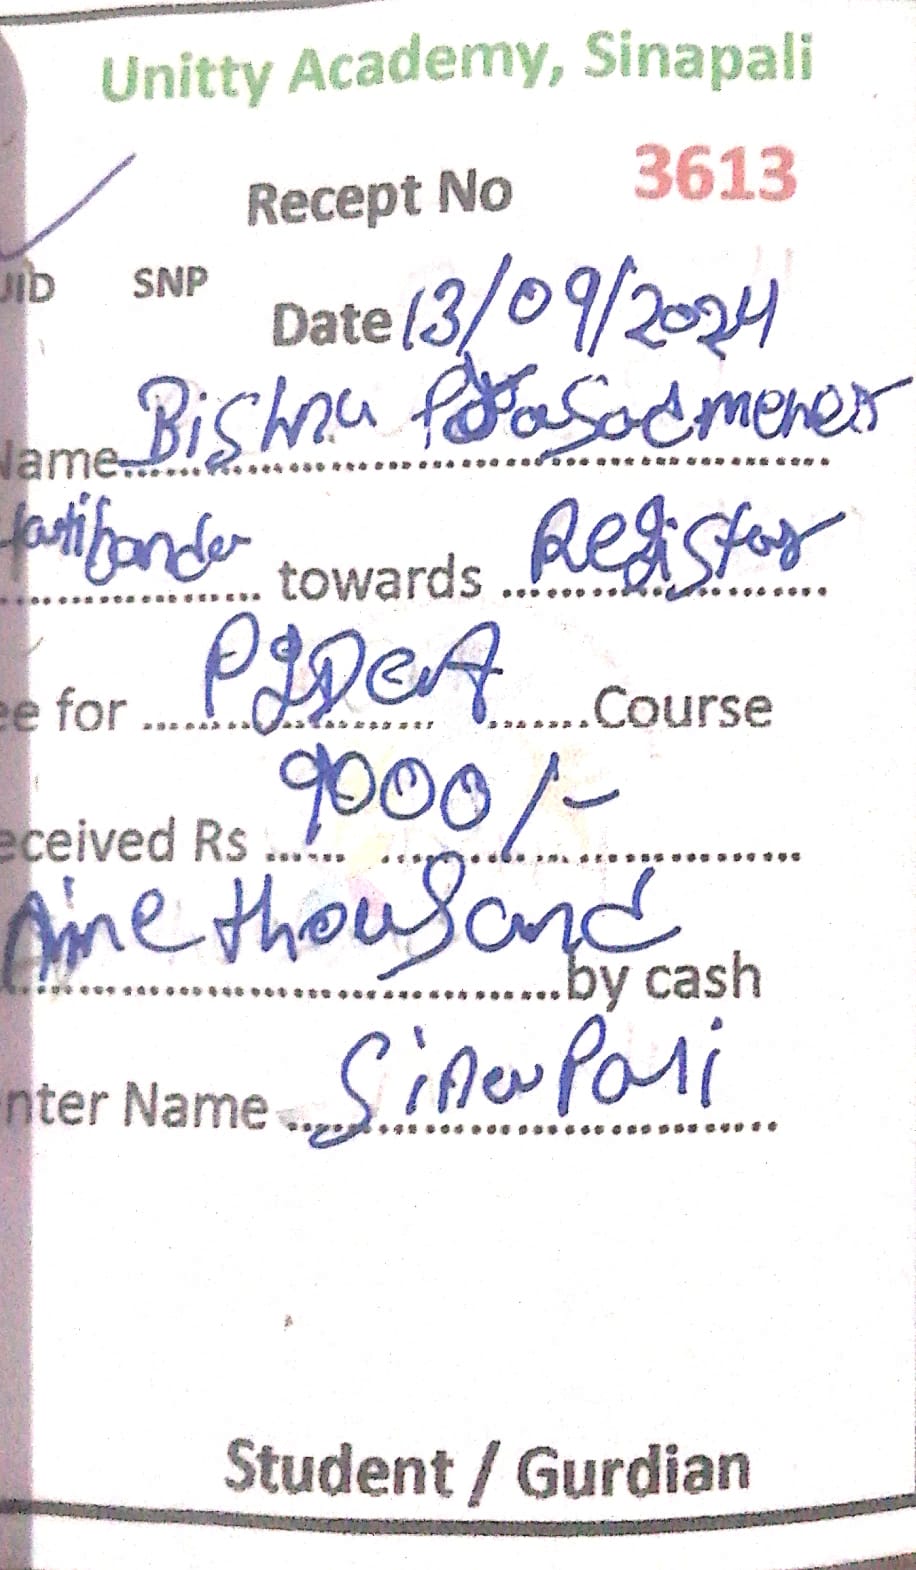 Unitty Academy, Sinapali
Recept No 3613
UID SNP
Date 13/09/2024
Name Bishnu Prasad meher
towards Register
ee for PGDCA Course
eceived Rs 9000/-
Nine thousand
by cash
nter Name Sinapali
Student / Gurdian